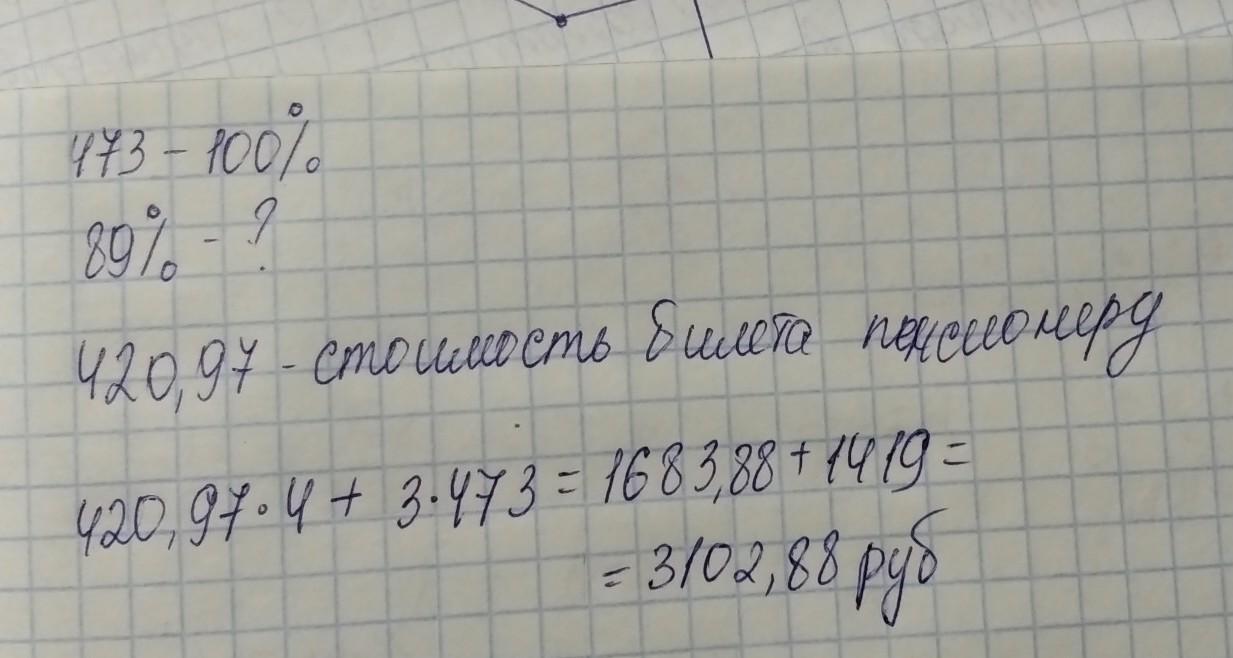 473 - 100%
89% - ?
420,97 - стоимость билета пенсионеру
420,97·4 + 3·473 = 1683,88 + 1419 =
= 3102,88 руб